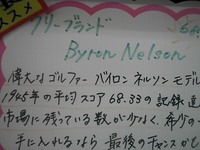 ススメ
クリーブランド
Byron Nelson
偉大なゴルファー バイロン ネルソン モデル
1945年の平均スコア 68.33の記録達
市場に残っている数が少なく、希少の
手に入れるなら 最後のチャンスかも